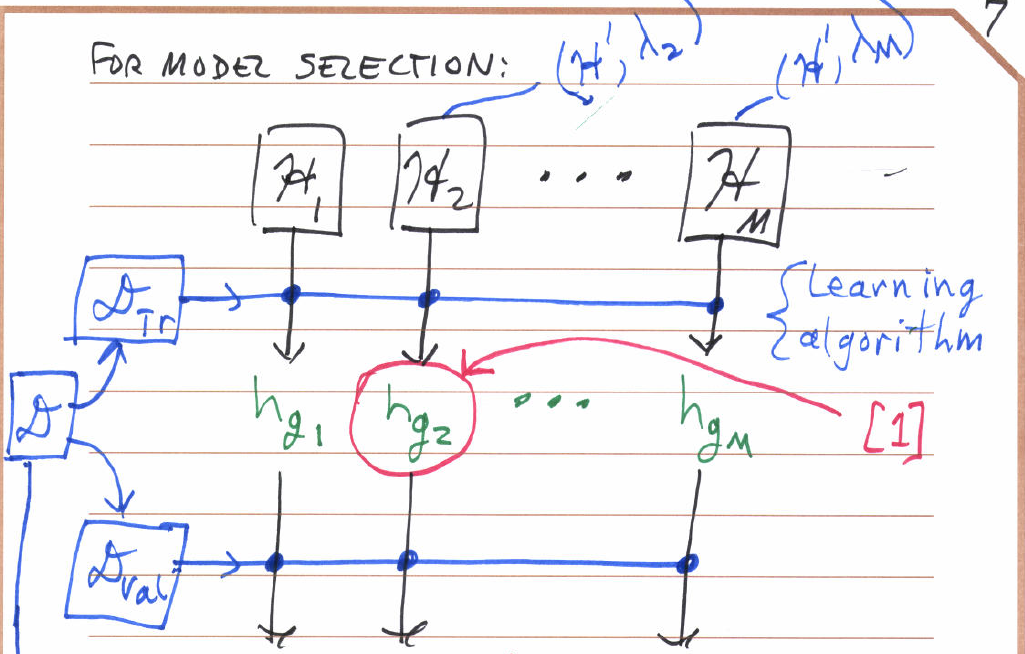 7
FOR MODEL SELECTION: (H', λ2) (H', λM)
H1 H2 ... HM
DTr { Learning
algorithm
D hg1 hg2 ... hgM [1]
Dval